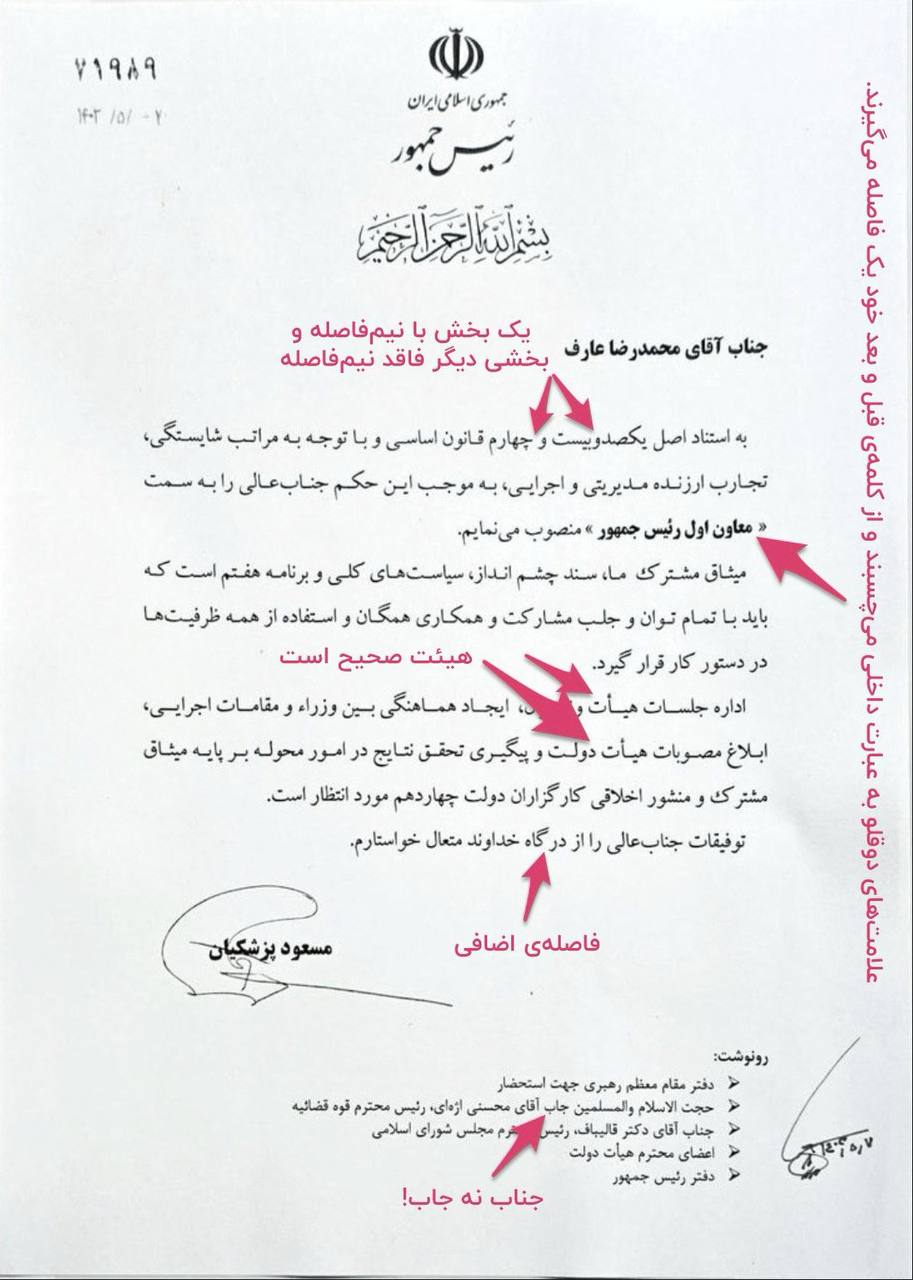 ۷۱۹۸۹
۱۴۰۳ /۵/ -۷
جمهوری اسلامی ایران
رئیس جمهور
بسم الله الرحمن الرحیم
یک بخش با نیم‌فاصله و
بخشی دیگر فاقد نیم‌فاصله
جناب آقای محمدرضا عارف
به استناد اصل یکصدوبیست و چهارم قانون اساسی و با توجه به مراتب شایستگی،
تجارب ارزنده مدیریتی و اجرایی، به موجب این حکم جناب‌عالی را به سمت
« معاون اول رئیس جمهور » منصوب می‌نمایم.
میثاق مشترک ما، سند چشم انداز، سیاست‌های کلی و برنامه هفتم است که
باید با تمام توان و جلب مشارکت و همکاری همگان و استفاده از همه ظرفیت‌ها
در دستور کار قرار گیرد.
هیئت صحیح است
اداره جلسات هیأت ایجاد هماهنگی بین وزراء و مقامات اجرایی،
ابلاغ مصوبات هیأت دولت و پیگیری تحقق نتایج در امور محوله بر پایه میثاق
مشترک و منشور اخلاقی کارگزاران دولت چهاردهم مورد انتظار است.
توفیقات جناب‌عالی را از در گاه خداوند متعال خواستارم.
فاصله‌ی اضافی
مسعود پزشکیان
رونوشت:
دفتر مقام معظم رهبری جهت استحضار
حجت الاسلام والمسلمین جاب آقای محسنی اژه‌ای، رئیس محترم قوه قضائیه
جناب آقای دکتر قالیباف، مجلس شورای اسلامی
اعضای محترم هیأت دولت
دفتر رئیس جمهور
جناب نه جاب!
علامت‌های دوقلو به عبارت داخلی می‌چسبند و از کلمه‌ی قبل و بعد خود یک فاصله می‌گیرند.